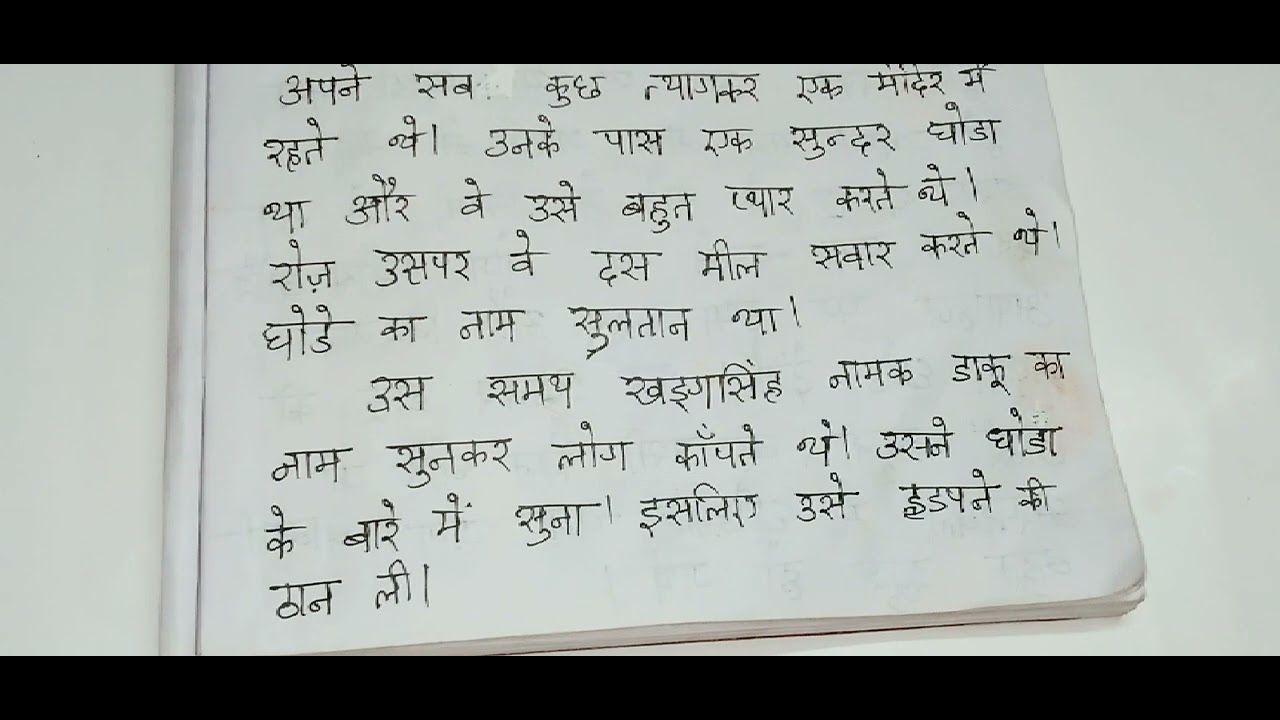 अपने सब कुछ त्यागकर एक मंदिर में
रहते थे। उनके पास एक सुन्दर घोडा
था और वे उसे बहुत प्यार करते थे।
रोज़ उसपर वे दस मील सवार करते थे।
घोडे का नाम सुलतान था।
उस समय खड्गसिंह नामक डाकू का
नाम सुनकर लोग काँपते थे। उसने घोडा
के बारे में सुना। इसलिए उसे हडपने की
ठान ली।